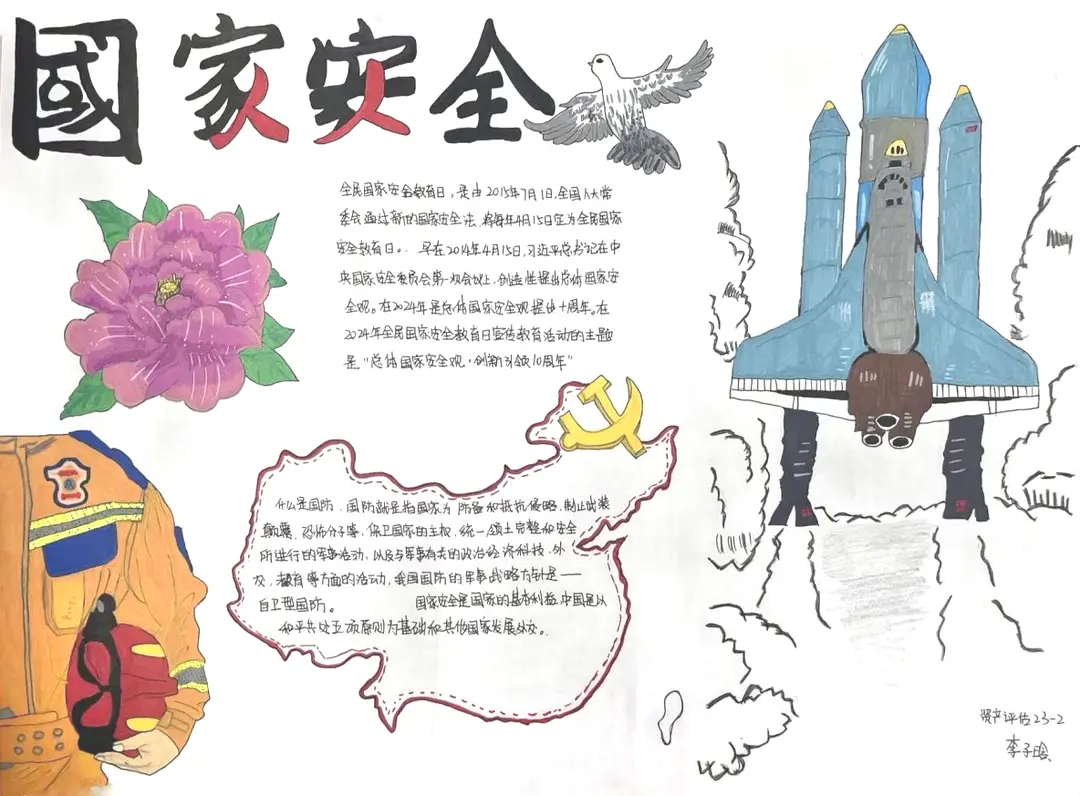 國家安全
全民国家安全教育日，是由2015年7月1日，全国人大常
委会通过新的国家安全法，将每年4月15日定为全民国家
安全教育日。早在2014年4月15日，习近平总书记在中
央国家安全委员会第一次会议上，创造性提出总体国家安
全观。在2024年是总体国家安全观提出十周年。在
2024年全民国家安全教育日宣传教育活动的主题
是“总体国家安全观·创新引领10周年”
什么是国防，国防就是指国家为防备和抵抗侵略，制止武装
颠覆，恐怖分子等，保卫国家的主权，统一领土完整和安全
所进行的军事活动，以及与军事有关的政治经济科技，外
交，教育等方面的活动，我国国防的军事战略方针是——
自卫型国防。 国家安全是国家的基本利益，中国是以
和平共处五项原则为基础和其他国家发展外交。
资产评估23-2
李子晗